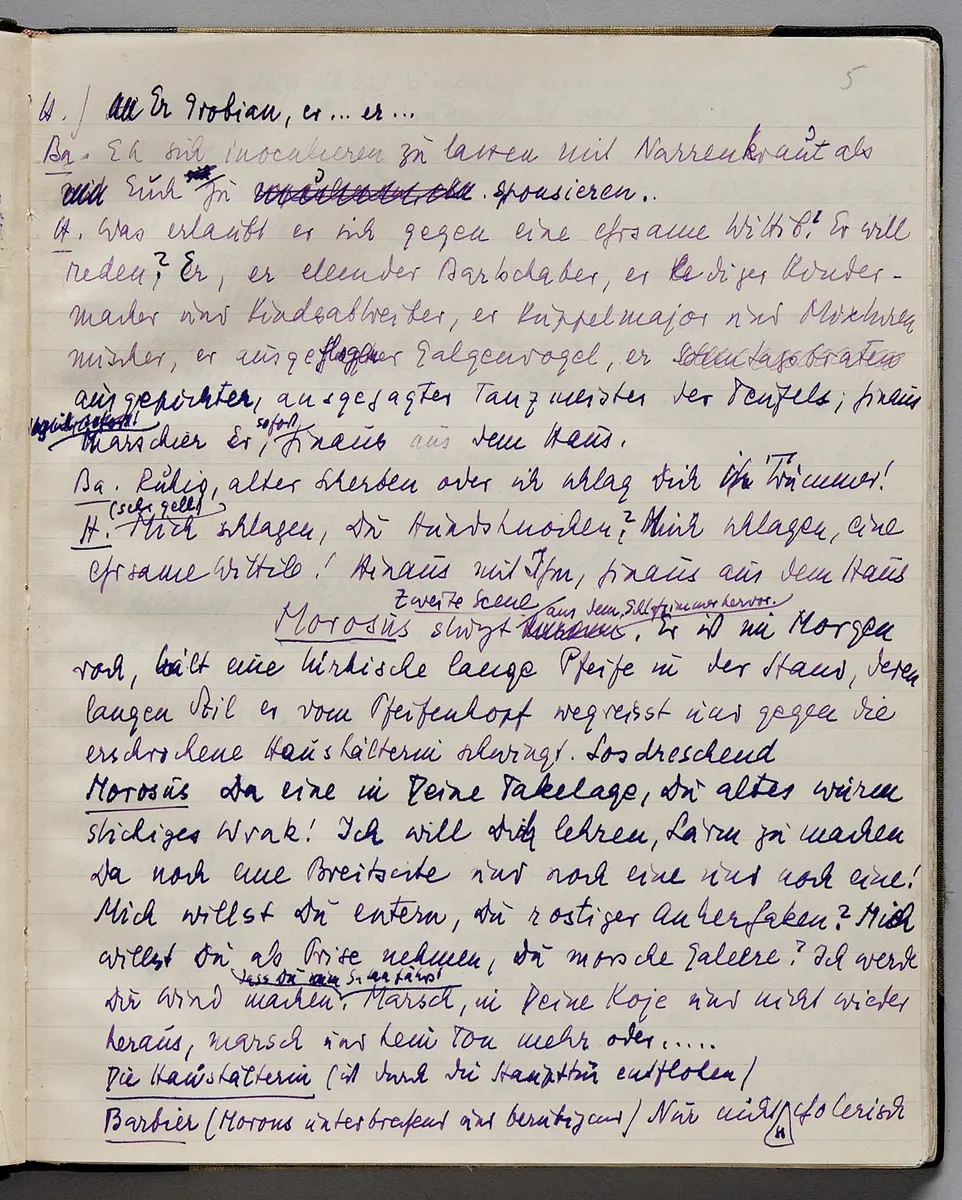 5
H.) Er Grobian, er ... er ...
Ba. Eh sich inoculieren zu lassen mit Narrenkraut als
mit Euch zu sponsieren..
H. Was erlaubt er sich gegen eine ehrsame Wittib? Er will
reden? Er, er elender Bartschaber, er lediger Kinder-
macher und Kindsabtreiber, er Kuppelmajor und Mixturen
mischer, er ausgeflogener Galgenvogel, er
ausgepichter, ausgesagter Tanzmeister der Teufels; hinaus
sofort
Marschier Er, hinaus aus dem Haus.
Ba. Ruhig, alter Scherben oder ich schlag Dich in Trümmer!
(sehr gell)
H. Mich schlagen, Du Hundsknochen? Mich schlagen, eine
ehrsame Wittib! Hinaus mit Ihm, hinaus aus dem Haus
Zweite Scene
aus dem Schlafzimmer hervor.
Morosus stürzt. Er ist im Morgen
rock, hält eine türkische lange Pfeife in der Hand, deren
langen Stil er vom Pfeifenkopf wegreisst und gegen die
erschrockene Haushälterin schwingt. Losdreschend
Morosus Da eine in Deine Takelage, Du altes wurm
stichiges Wrak! Ich will Dich lehren, Lärm zu machen
Da noch eine Breitseite und noch eine und noch eine!
Mich willst Du entern, Du rostiger Ankerhaken? Mich
willst Du als Prise nehmen, Du morsche Galeere? Ich werde
dass Du
Dir Wind machen. Marsch, in Deine Koje und nicht wieder
heraus, marsch und kein Ton mehr oder.....
Die Haushälterin (ist durch die Haupttür entflohen)
Barbier (Morosus unterbrechend und beruhigend) Nur nicht cholerisch